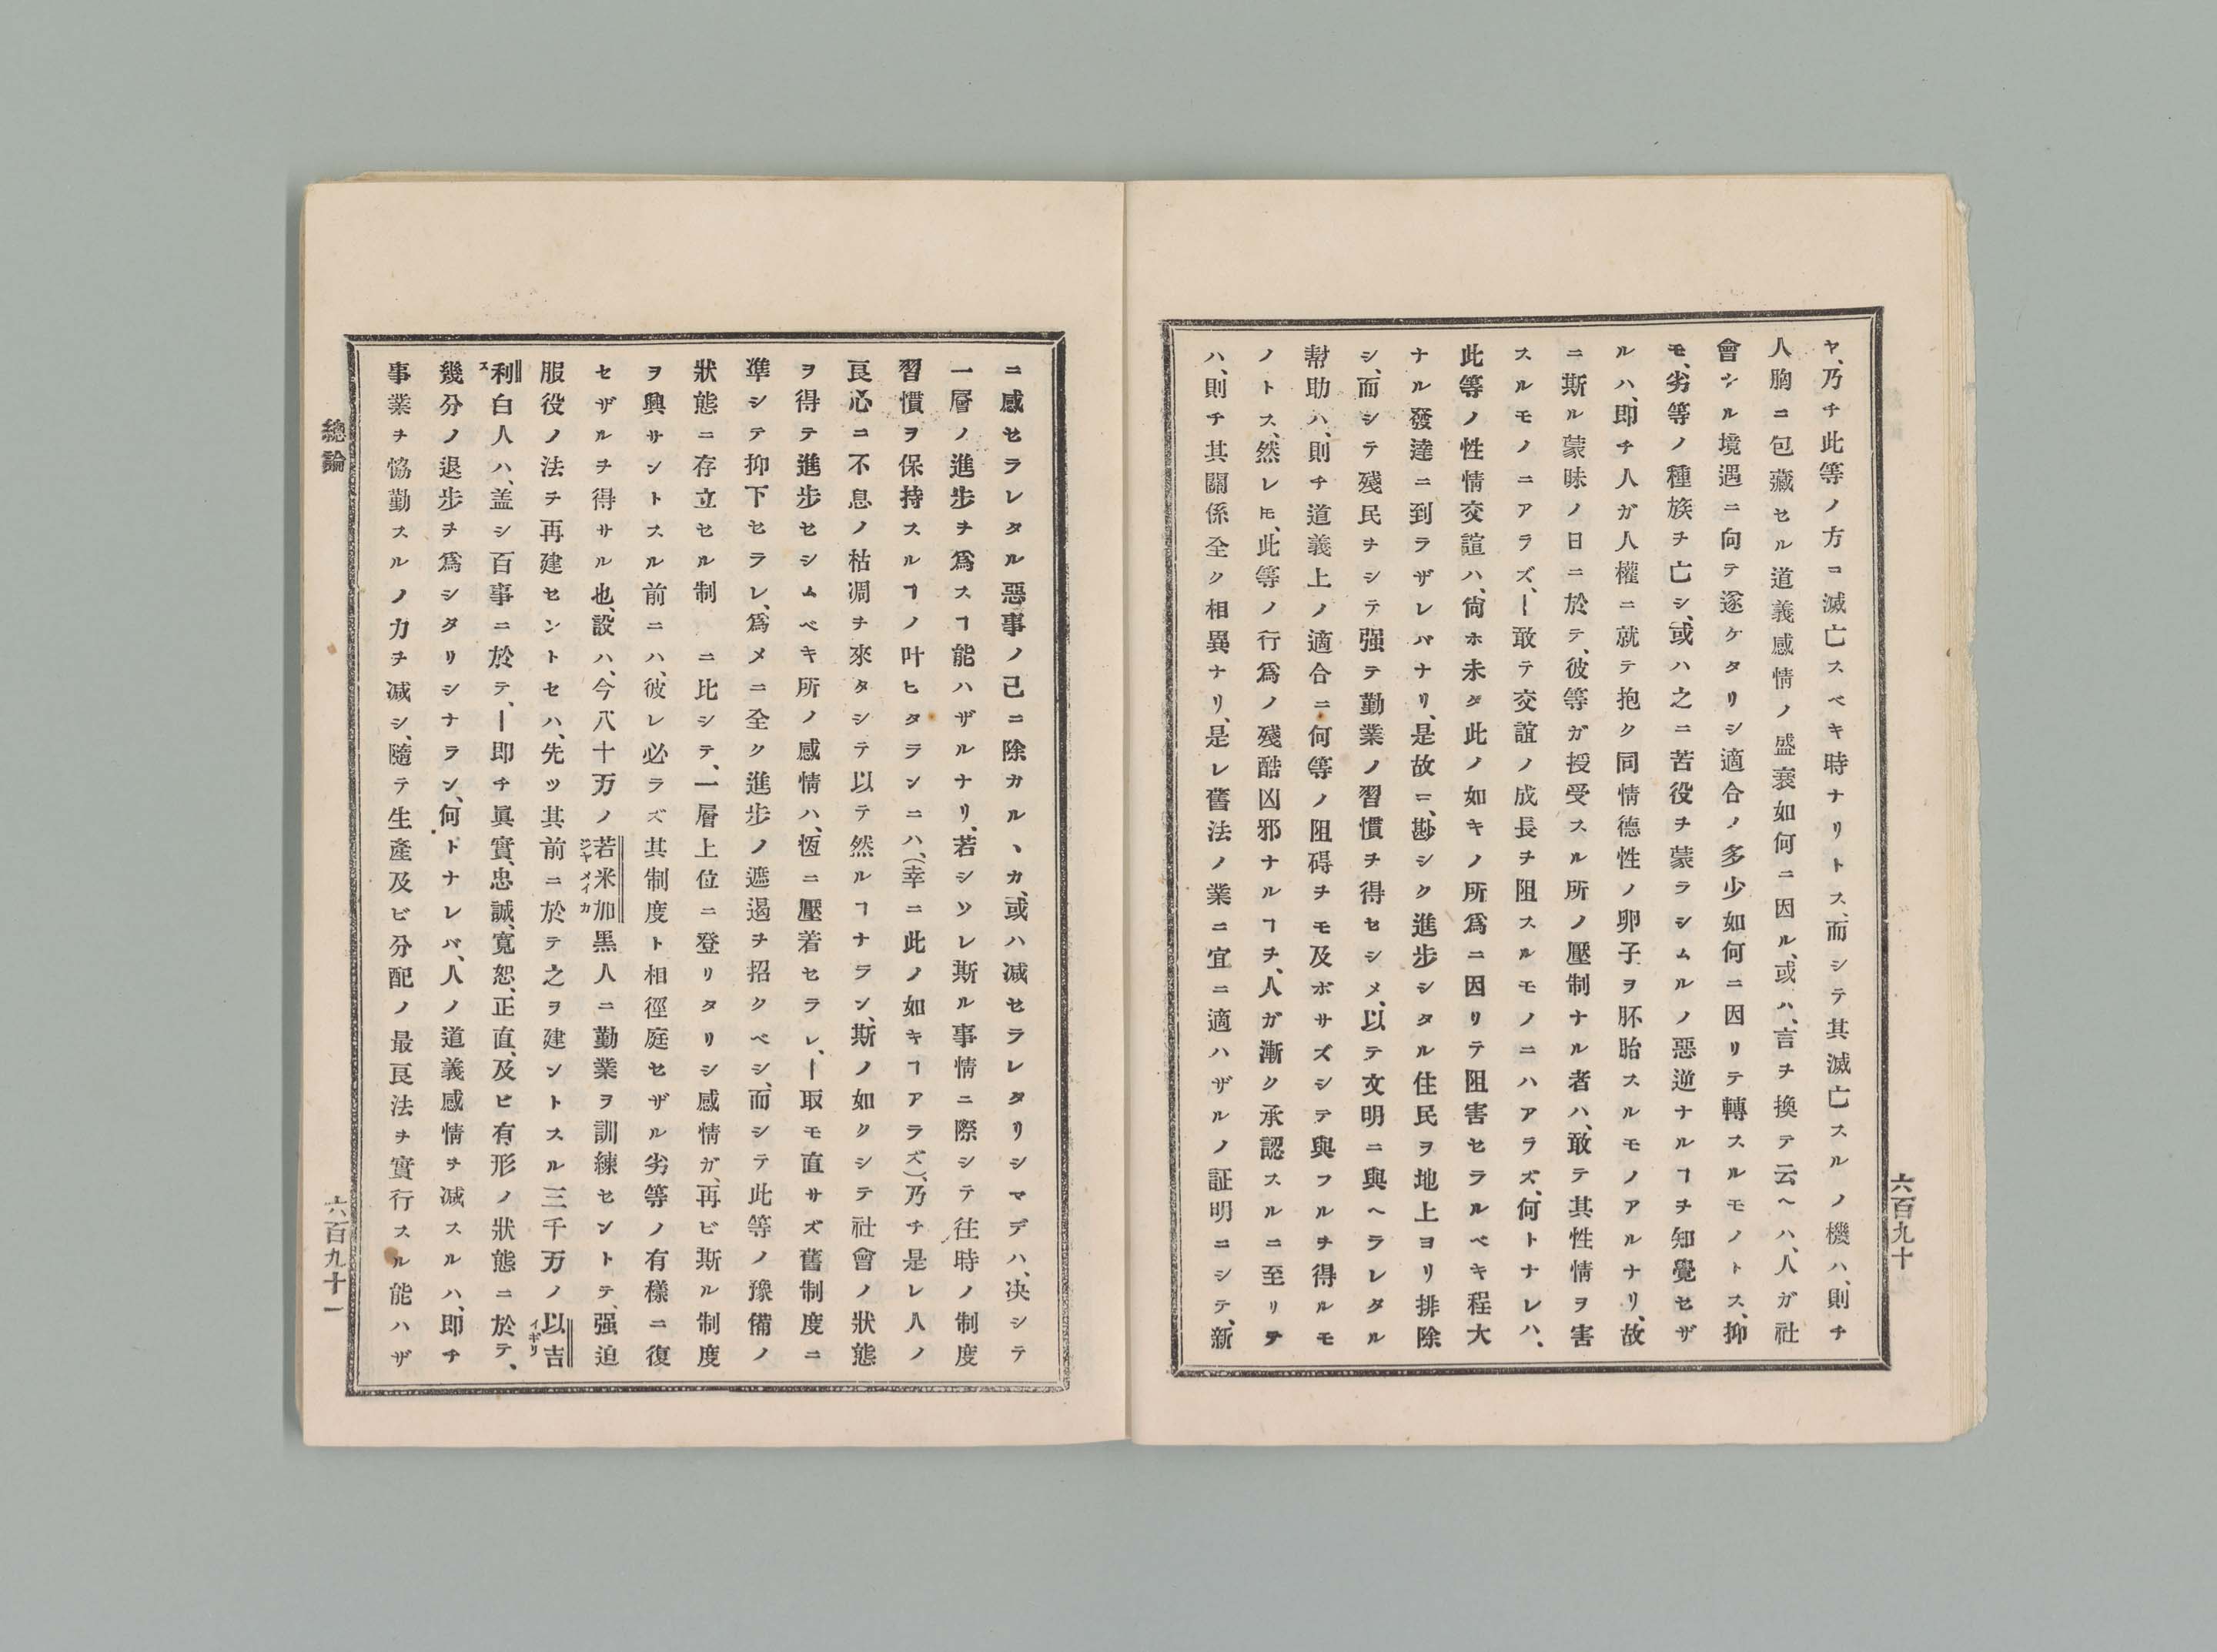 ヤ、乃チ此等ノ方コ滅亡スベキ時ナリトス、而シテ其滅亡スルノ機ハ、則チ
人胸ニ包藏セル道義感情ノ盛衰如何ニ因ル、或ハ、言チ換テ云ヘハ、人ガ社
會ンル境遇ニ向テ遂ケタリシ適合ノ多少如何ニ因リテ轉スルモノトス、抑
モ、劣等ノ種族チ亡シ、或ハ之ニ苦役チ蒙ラシムルノ惡逆ナルヿチ知覺セザ
ルハ、即チ人ガ人權ニ就テ抱ク同情德性ノ卵子ヲ胚胎スルモノアルナリ、故
ニ斯ル蒙昧ノ日ニ於テ、彼等ガ授受スル所ノ壓制ナル者ハ、敢テ其性情ヲ害
スルモノニアラズ、―敢テ交誼ノ成長チ阻スルモノニハアラズ、何トナレハ、
此等ノ性情交誼ハ、尙ホ未タ此ノ如キノ所爲ニ因リテ阻害セラルベキ程大
ナル發達ニ到ラザレバナリ、是故ニ、尠シク進步シタル住民ヲ地上ヨリ排除
シ、而シテ殘民チシテ强テ勤業ノ習慣チ得セシメ、以テ文明ニ與ヘラレタル
幇助ハ、則チ道義上ノ適合ニ何等ノ阻碍チモ及ボサズシテ與フルチ得ルモ
ノトス、然レ𪜈、此等ノ行爲ノ殘酷凶邪ナルヿチ、人ガ漸ク承認スルニ至リテ
ハ、則チ其關係全ク相異ナリ、是レ舊法ノ業ニ宜ニ適ハザルノ証明ニシテ、新
六百九十
ニ感セラレタル惡事ノ己ニ除カル丶カ、或ハ減セラレタリシマデハ、决シテ
一層ノ進步チ爲スヿ能ハザルナリ、若シソレ斯ル事情ニ際シテ往時ノ制度
習慣ヲ保持スルヿノ叶ヒタランニハ、(幸ニ此ノ如キヿアラズ)、乃チ是レ人ノ
良心ニ不息ノ枯凋チ來タシテ以テ然ルヿナラン、斯ノ如クシテ社會ノ狀態
ヲ得テ進步セシムベキ所ノ感情ハ、恆ニ壓着セラレ、―取モ直サズ舊制度ニ
準シテ抑下セラレ、爲メニ全ク進步ノ遮遏チ招クベシ、而シテ此等ノ豫備ノ
狀態ニ存立セル制 ニ比シテ、一層上位ニ登リタリシ感情ガ、再ビ斯ル制度
ヲ興サントスル前ニハ、彼レ必ラズ其制度ト相徑庭セザル劣等ノ有樣ニ復
セザルチ得サル也、設ハ、今八十万ノ若米加黑人ニ勤業ヲ訓練セントテ、强迫
ジヤメイカ
服役ノ法チ再建セントセハ、先ツ其前ニ於テ之ヲ建ントスル三千万ノ以吉
イギリ
利白人ハ、盖シ百事ニ於テ、―即チ眞實、忠誠、寬恕、正直、及ヒ有形ノ狀態ニ於テ、
ス
幾分ノ退步ヲ爲シタリシナラン、何トナレバ、人ノ道義感情ヲ減スルハ、即チ
事業チ恊勤スルノ力チ減シ、隨テ生產及ビ分配ノ最良法チ實行スル能ハザ
總論
六百九十一